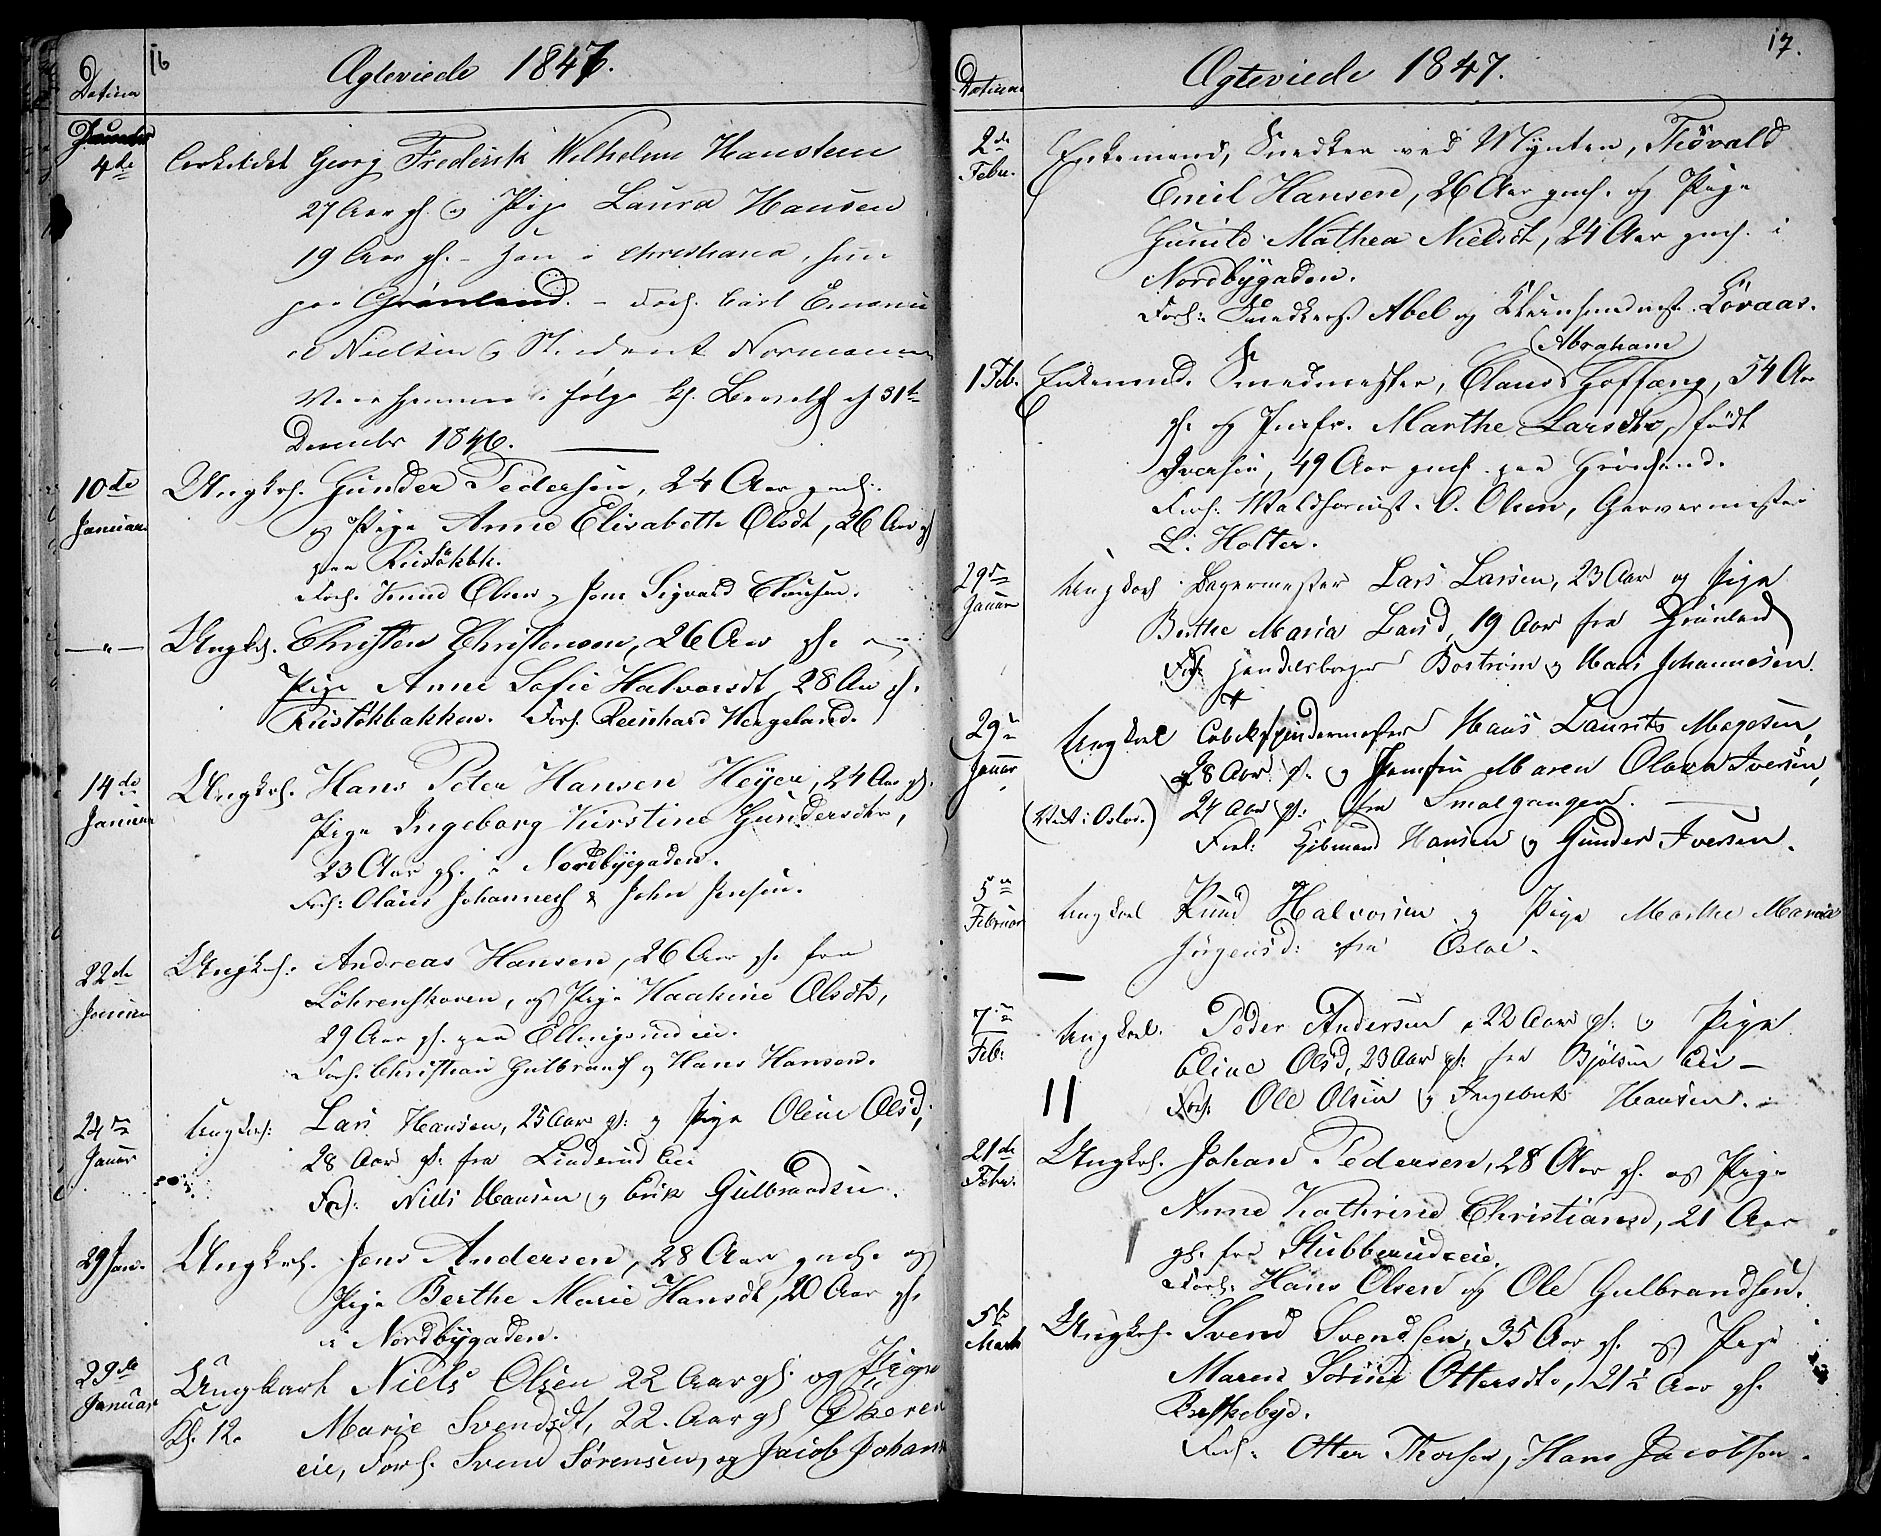 16
Ægteviede 1847.
Datum
4de Arkitekt Georg Frederik Wilhelm Hansteen
27 Aar gl. og Pige Laura Hansen
19 Aar gl. - han i Christiania, hun
paa Grønland. - Forl. Carl Emanu
el Nielsen og Student Normann
i følge Kgl. af 31te
December 1846.
10de Januar Ungkrl. Gunder Pedersen, 24 Aar gml.
og Pige Anne Elisabeth Olsdt, 26 Aar gl
paa Ruseløkbk.
Forl. Knud Olsen og Jens Sigvard Clausen.
—"— Ungkrl. Christen Christensen, 26 Aar gl. og
Pige Anne Sofie Halvorsdt, 28 Aar gl.
Ruseløkbakken. Forl. Reinhard Hergeland.
14de Januar Ungkrl. Hans Peter Hansen Heyer, 24 Aar gl.
Pige Ingeborg Kirstine Gundersdtr,
23 Aar gl. i Nordbyegaden.
Forl: Olaus Johannes & John Jensen.
22de Januar Ungkrl. Andreas Hansen, 26 Aar gl. fra
Løhrenskoven, og Pige Haakine Olsdtr,
29 Aar gl. paa Ellingsrudeie.
Forl. Christian Gulbrands og Hans Hansen.
24de Januar Ungkrl: Lars Hansen, 25 Aar gl: og Pige Oline Olsd,
28 Aar gl. fra Linderud Eie
Forl: Niels Hansen og Erik Gulbrandsen.
29 Jan. Ungkrl. Jens Andersen, 28 Aar gml. og
Pige Berthe Marie Hansdt, 20 Aar gl.
i Nordbygaden.
29de Januar Ungkarl Niels Olsen 22 Aar gl. og Pige
Kl. 12. Marie Svendsdt, 22. Aar gl Økeren
eie, Forl. Svend Sørensen, og Jacob Johans
17.
Ægteviede 1847.
Datum
2de Febr. Enkemand, Snedker ved Mynten, Thorvald
Emil Hansen, 26 Aar gml. og Pige
Gunild Mathea Nielsdt, 24 Aar gml. i
Nordbygaden.
Forl: Snedkers. Abel og Løvaas.
Abraham
1 Feb. Enkemand. Smedmester, Claus Hoffgang, 54 Aar
gl. og Jomfr. Marthe Larsdtr, født
Iversen, 49 Aar gml. paa Grønland.
Forl. O. Olsen, Garvermester
L. Holter.
29de Januar Ungkarl Bagermester Lars Larsen, 23 Aar og Pige
Berthe Maria Larsd, 19 Aar fra Grønland
Forl. Handelsborger Bostrøm og Hans Johannesen.
29de Januar Ungkarl Hans Laurits Mogesen,
28 Aar gl. og Jomfru Maren Olava Iversen,
(Viet i Osloe.) 24 Aar gl: fra Smalgangen.
Forl: Hansen og Gunder Iversen.
5te Februar Ungkarl Knud Halvorsen og Pige Marthe Maria
Jørgensd: fra Osloe.
7de Feb: Ungkarl Peder Andersen, 22 Aar gl. og Pige
Eline Olsd, 23 Aar gl. fra Bjølsen Eie -
Forl. Ole Olsen og Ingebret Hansen.
21de Febr. Ungkrl. Johan Pedersen, 28 Aar gl. og Pige
Anne Kathrine Christiansd, 21 Aar
gl. fra Stubberudeie.
Forl. Hans Olsen og Ole Gulbrandsen.
5te Marts Ungkrl. Svend Svendsen, 35 Aar gl. og Pige
Maren Sørine Ottersdtr, 21½ Aar gl.
Forl. Otter Thorsen, Hans Jacobsen.